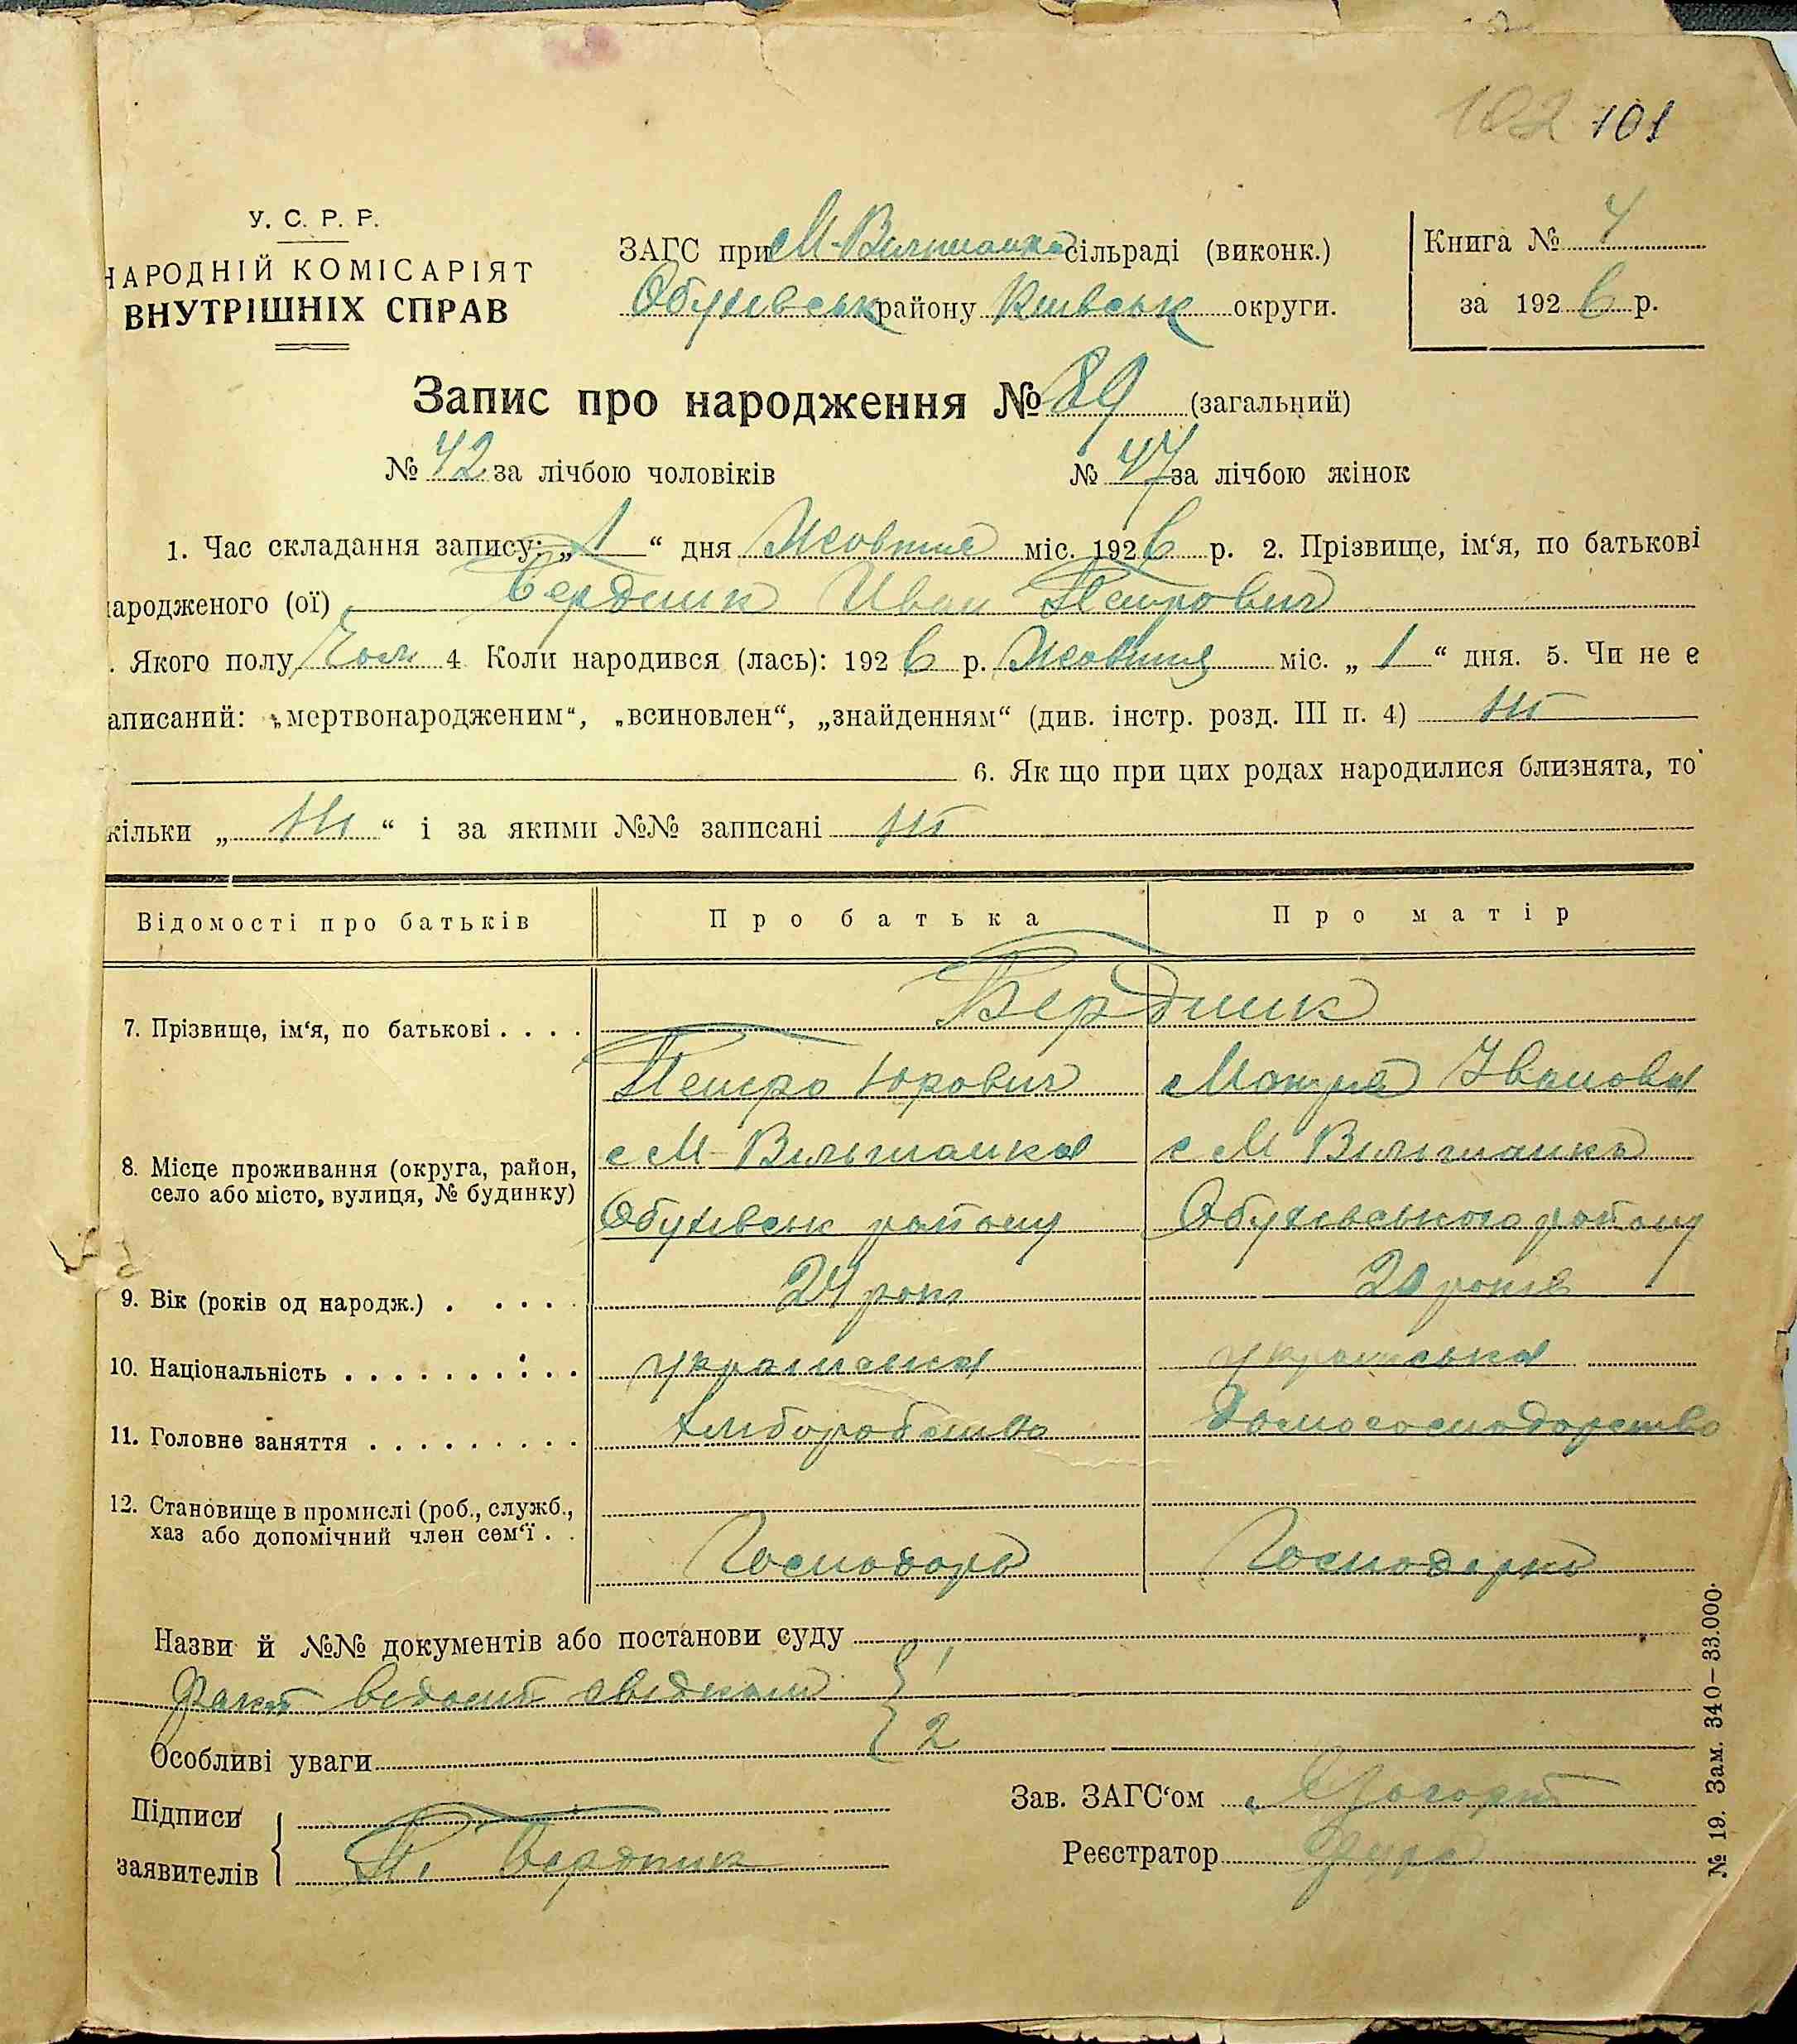 102 101
У. С. Р. Р.
НАРОДНІЙ КОМІСАРІЯТ
ВНУТРІШНІХ СПРАВ
ЗАГС при М-Вильшанка сільраді (виконк.)
Обухівськ району Київськ округи.
Книга №
за 1926 р.
Запис про народження № 89 (загальний)
№ 42 за лічбою чоловіків № 47 за лічбою жінок
1. Час складання запису: „1“ дня Жовтня міс. 1926 р. 2. Прізвище, ім‘я, по батькові
ародженого (ої) Бердник Иван Петрович
. Якого полу Чол 4 Коли народився (лась): 1926 р. Жовтня міс. „1“ дня. 5. Чи не є
аписаний: „мертвонародженим“, „всиновлен“, „знайденням“ (див. інстр. розд. III п. 4) ні
6. Як що при цих родах народилися близнята, то
кільки „ні“ і за якими №№ записані ні
Відомості про батьків Про батька Про матір
7. Прізвище, ім‘я, по батькові . . . . Бердник
Петро Юрович Мотря Іванова
8. Місце проживання (округа, район, село або місто, вулиця, № будинку) с М-Вільшанка с М Вільшанка
Обухівськ району Обухівського району
9. Вік (років од народж.) . . . . . 24 рок 20 років
10. Національність . . . . . . . . . . українська
11. Головне заняття . . . . . . . . . Хліборобство Домогосподарство
12. Становище в промислі (роб., служб., хаз або допомічний член сем‘ї . . Господар Господарка
Назви й №№ документів або постанови суду
Факт відомий свідкам { 1
2
Особливі уваги
Підписи
заявителів { П. Бердник
Зав. ЗАГС‘ом
Реєстратор
№ 19. Зам. 340—33.000.